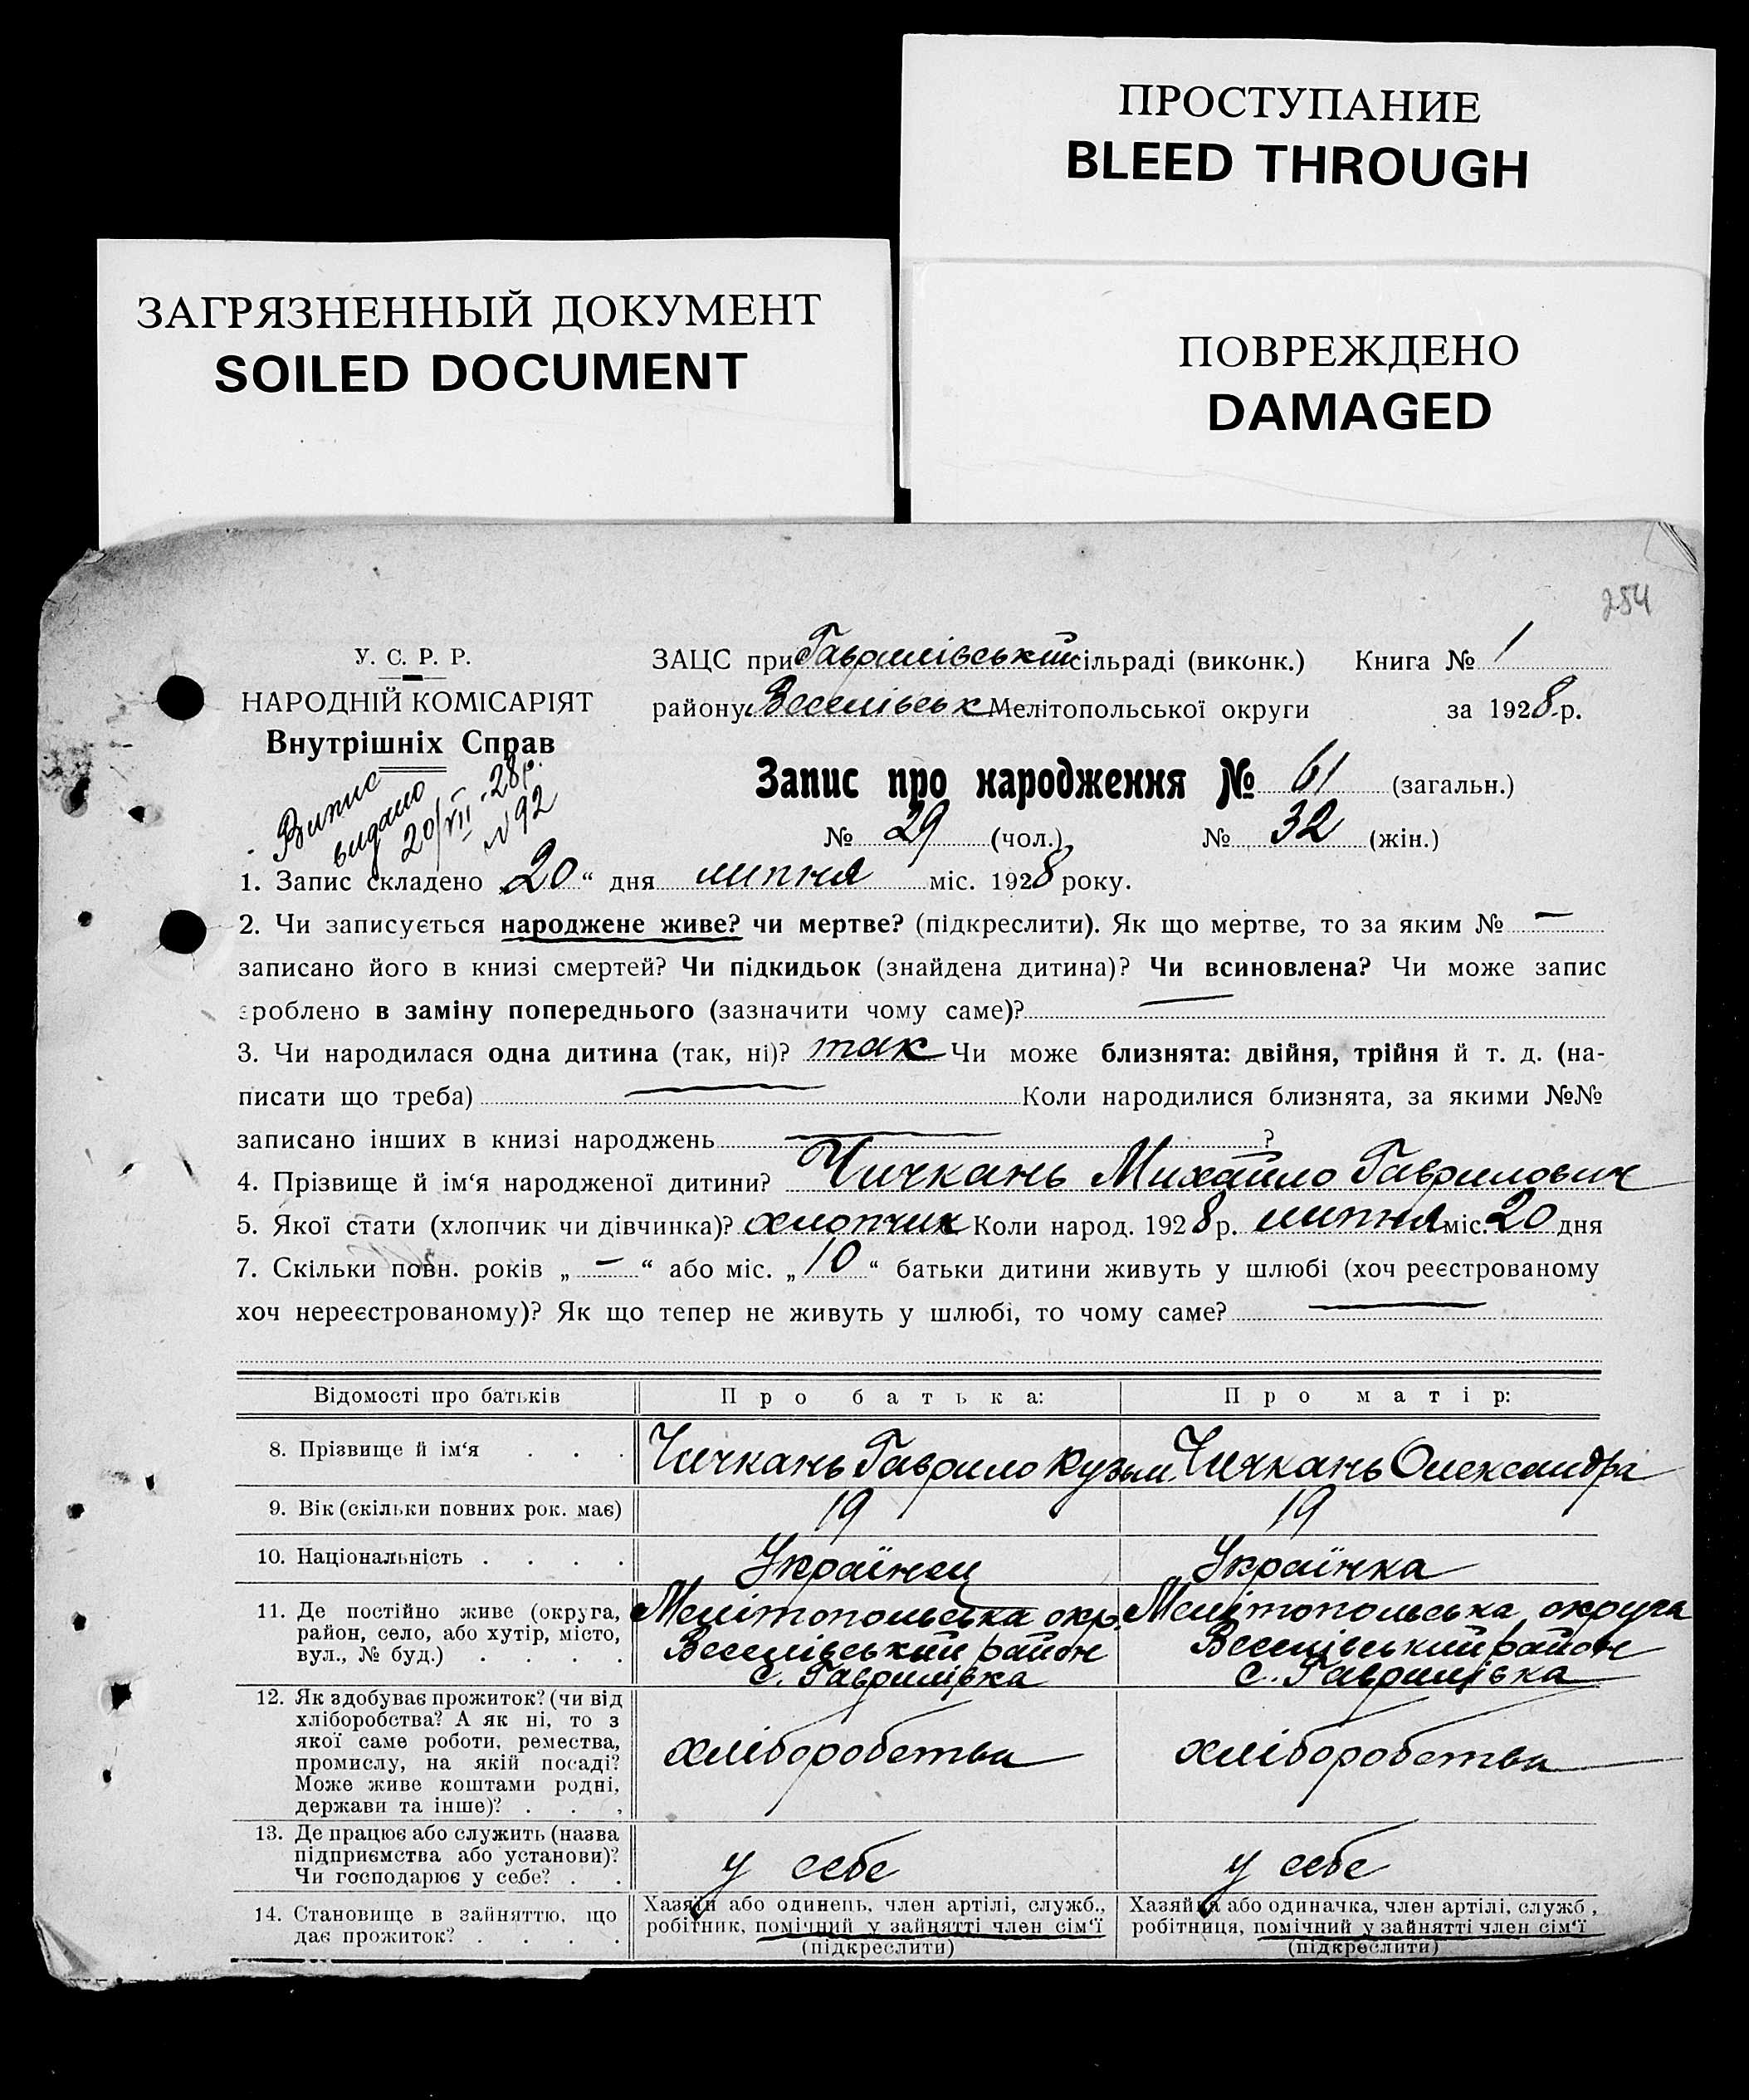 ПРОСТУПАНИЕ
BLEED THROUGH
ЗАГРЯЗНЕННЫЙ ДОКУМЕНТ
SOILED DOCUMENT
ПОВРЕЖДЕНО
DAMAGED
254
У. С. Р. Р.
НАРОДНІЙ КОМІСАРІЯТ
Внутрішніх Справ
Випис
видано
20/VII-28р.
№ 92
ЗАЦС при Гаврилівській сільраді (виконк.) Книга № 1
району Веселівськ Мелітопольської округи за 1928 р.
Запис про народження № 61 (загальн.)
№ 29 (чол.) № 32 (жін.)
1. Запис складено „20“ дня липня міс. 1928 року.
2. Чи записується народжене живе? чи мертве? (підкреслити). Як що мертве, то за яким № —
записано його в книзі смертей? Чи підкидьок (знайдена дитина)? Чи всиновлена? Чи може запис
зроблено в заміну попереднього (зазначити чому саме)? —
3. Чи народилася одна дитина (так, ні)? так Чи може близнята: двійня, трійня й т. д. (на-
писати що треба) — Коли народилися близнята, за якими №№
записано інших в книзі народжень — ?
4. Прізвище й ім‘я народженої дитини? Чичкань Михайло Гаврилович
5. Якої стати (хлопчик чи дівчинка)? хлопчик Коли народ. 1928 р. липня міс. 20 дня
7. Скільки повн. років „ — “ або міс. „ 10 “ батьки дитини живуть у шлюбі (хоч реєстрованому
хоч нереєстрованому)? Як що тепер не живуть у шлюбі, то чому саме? —
Відомості про батьків Про батька: Про матір:
8. Прізвище й ім‘я . . . Чичкань Гаврило Кузьм. Чичкань Олександра
9. Вік (скільки повних рок. має) 19 19
10. Національність . . . . Українец Українка
11. Де постійно живе (округа, Мелітопольська окр. Мелітопольська округа
район, село, або хутір, місто, Веселівський район Веселівський район
вул., № буд.) . . . . с. Гаврилівка с. Гаврилівка
12. Як здобуває прожиток? (чи від
хліборобства? А як ні, то з
якої саме роботи, ремества,
промислу, на якій посаді? хліборобства хліборобства
Може живе коштами родні,
держави та інше)? . . .
13. Де працює або служить (назва
підприємства або установи)? у себе у себе
Чи господарює у себе? . .
14. Становище в зайняттю, що Хазяїн або одинець, член артілі, служб., Хазяйка або одиначка, член артілі, служб.,
дає прожиток? . . . . робітник, помічний у зайнятті член сім‘ї робітниця, помічний у зайнятті член сім‘ї
(підкреслити) (підкреслити)